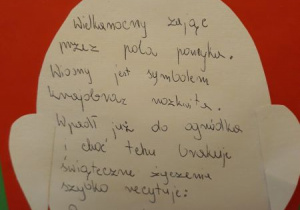 Wielkanocny zając
przez pola pomyka.
Wiosny jest symbolem
krajobraz rozkwita.
Wpadł już do ogródka
i choć tchu brakuje
świąteczne życzenia
szybko recytuje: